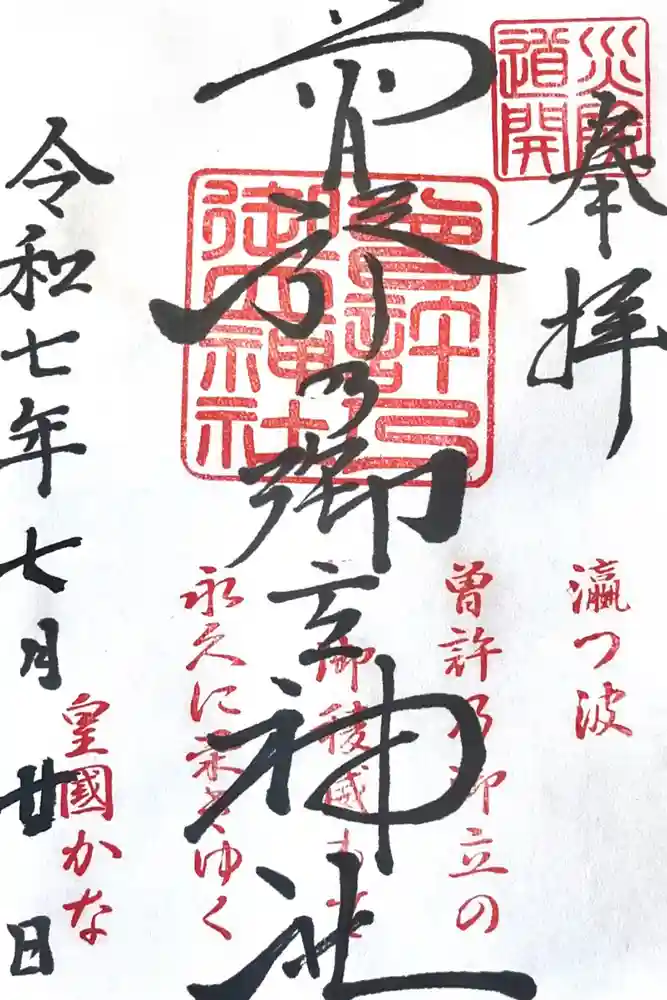 災除
道開
奉拝
瀛つ波
曾許乃御立の
曾許乃御立神社
曾許乃
御立神社
御稜威
永久に
ゆく
皇國かな
令和七年七月廿日